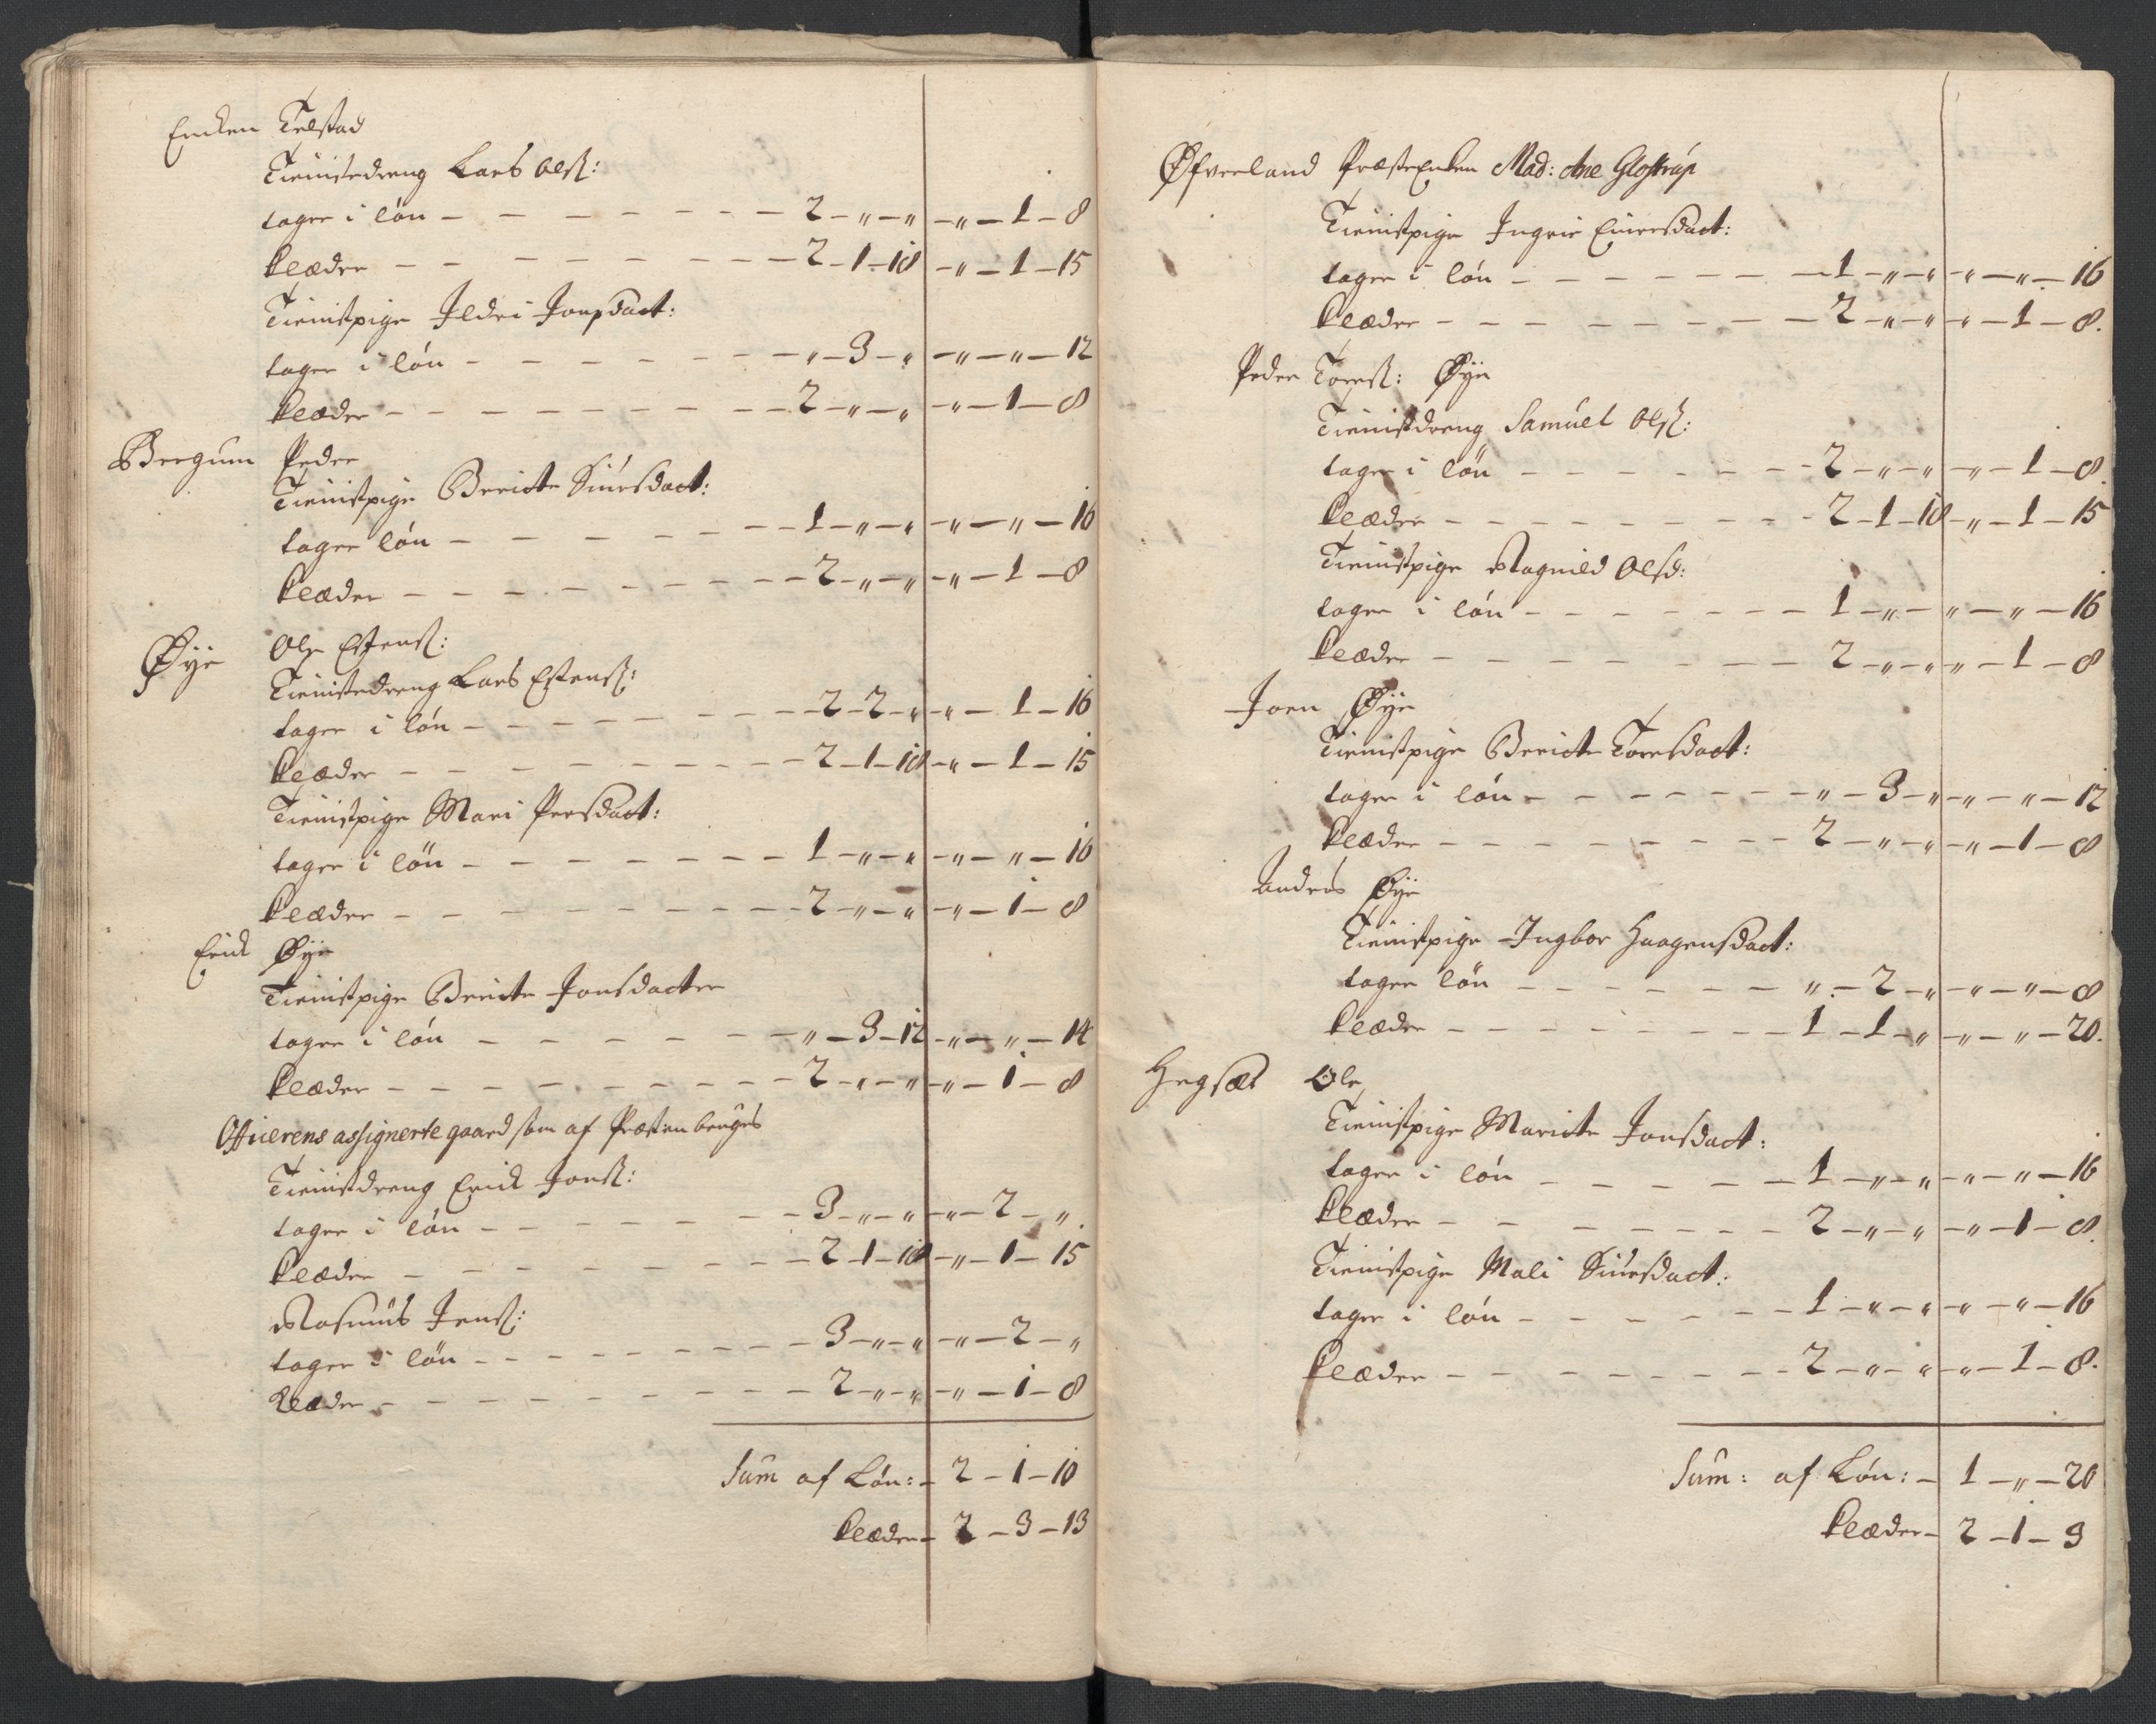 Encken Telstad
Tienistedreng Lars Olss:
tager i løn – – – – – – – – 2 – „ – „ – „ – 1 – 8
klæder – – – – – – – – 2 – 1 – 18 – „ – 1 – 15
Tienistpige Ildri Jonsdaet:
tager i løn – – – – – – – „ – 3 – „ – „ – „ – 12
klæder – – – – – – – – – 2 – „ – „ – „ – 1 – 8
Bergum Peder
Tienistpige Berirte Siursdact:
tager løn – – – – – – – – 1 – „ – „ – „ – „ – 16
klæder – – – – – – – – – 2 – „ – „ – „ – 1 – 8
Øye Ole Estenss:
Tienistedreng Lars Estenss:
tager i løn – – – – – – – – 2 – 2 – „ – „ – 1 – 16
klæder – – – – – – – – – 2 – 1 – 18 – „ – 1 – 15
Tienistpige Mari Persdact:
tager i løn – – – – – – – – 1 – „ – „ – „ – „ – 16
klæder – – – – – – – – – 2 – „ – „ – „ – 1 – 8
Erick Øye
Tienistpige Berirte Jonsdacter
tager i løn – – – – – – – „ – 3 – 12 – „ – „ – 14
klæder – – – – – – – – – 2 – „ – „ – „ – 1 – 8
Officerens assignerte gaard som af Præsten bruges
Tienistdreng Erick Jonss:
tager i løn – – – – – – – 3 – „ – „ – „ – 2 – „
klæder – – – – – – – – – 2 – 1 – 18 – „ – 1 – 15
Rasmus Jenss:
tager i løn – – – – – – – – 3 – „ – „ – „ – 2 – „
klæder – – – – – – – – – 2 – „ – „ – „ – 1 – 8
Sum af Løn: – 2 – 1 – 10
klæder – 2 – 3 – 13
Øfverland Præste Enken Mad: Ane Glostrup
Tienistpige Ingrie Einersdact:
tager i løn – – – – – – – 1 – „ – „ – „ – „ – 16
klæder – – – – – – – – 2 – „ – „ – „ – 1 – 8.
Peder Toress: Øye
Tienistdreng Samuel Olss:
tager i løn – – – – – – – 2 – „ – „ – „ – 1 – 8.
klæder – – – – – – – – – 2 – 1 – 18 – „ – 1 – 15
Tienistpige Ragnild Olsd:
tager i løn – – – – – – – 1 – „ – „ – „ – 16
klæder – – – – – – – – 2 – „ – „ – „ – 1 – 8
Joen Øye
Tienistpige Berirte Toresdact:
tager i løn – – – – – – – „ – 3 – „ – „ – „ – 12
klæder – – – – – – – – 2 – „ – „ – „ – 1 – 8
Anders Øye
Tienistpige Ingbor Haagensdact:
tager løn – – – – – – „ – 2 – „ – „ – „ – 8
klæder – – – – – – – – 1 – 1 – „ – „ – „ – 20.
Hegsæt Ole
Tienistpige Marirte Jonsdact:
tager i løn – – – – – 1 – „ – „ – „ – „ – 16
klæder – – – – – – – 2 – „ – „ – „ – 1 – 8.
Tienistpige Mali Siursdact:
tager i løn – – – – – – 1 – „ – „ – „ – „ – 16
klæder – – – – – – – – 2 – „ – „ – „ – 1 – 8.
Sum: af Løn: – 1 – „ – 20
klæder – 2 – 1 – 3